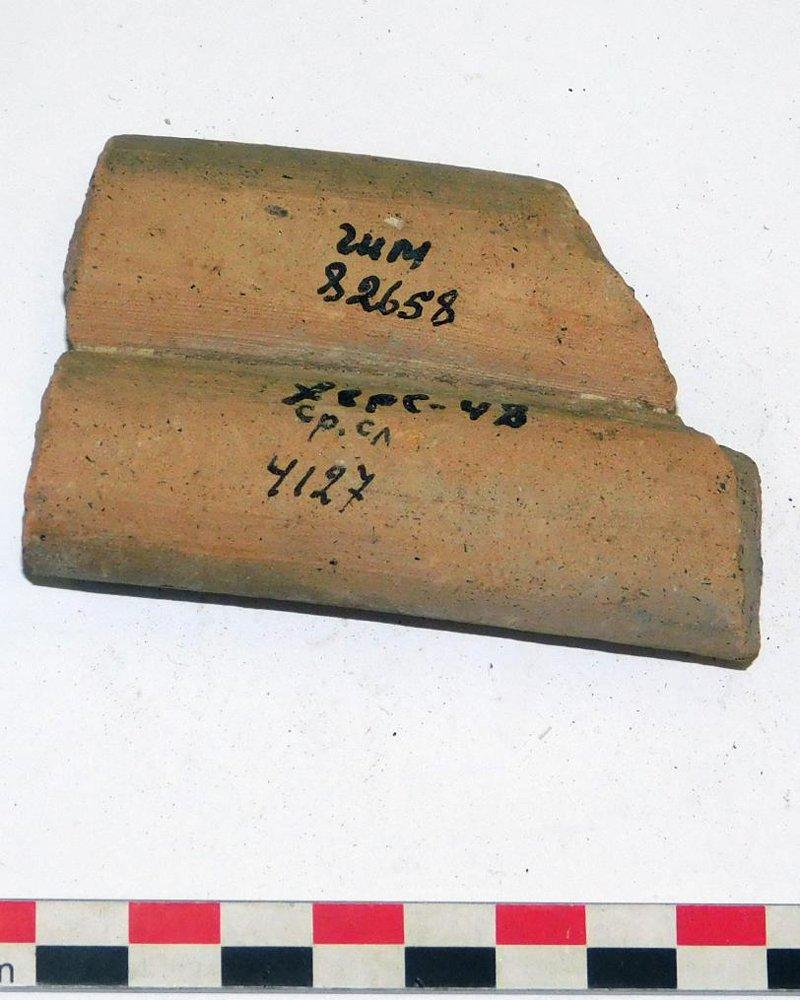 гим
82658
Херс-48
ср.сл
4127